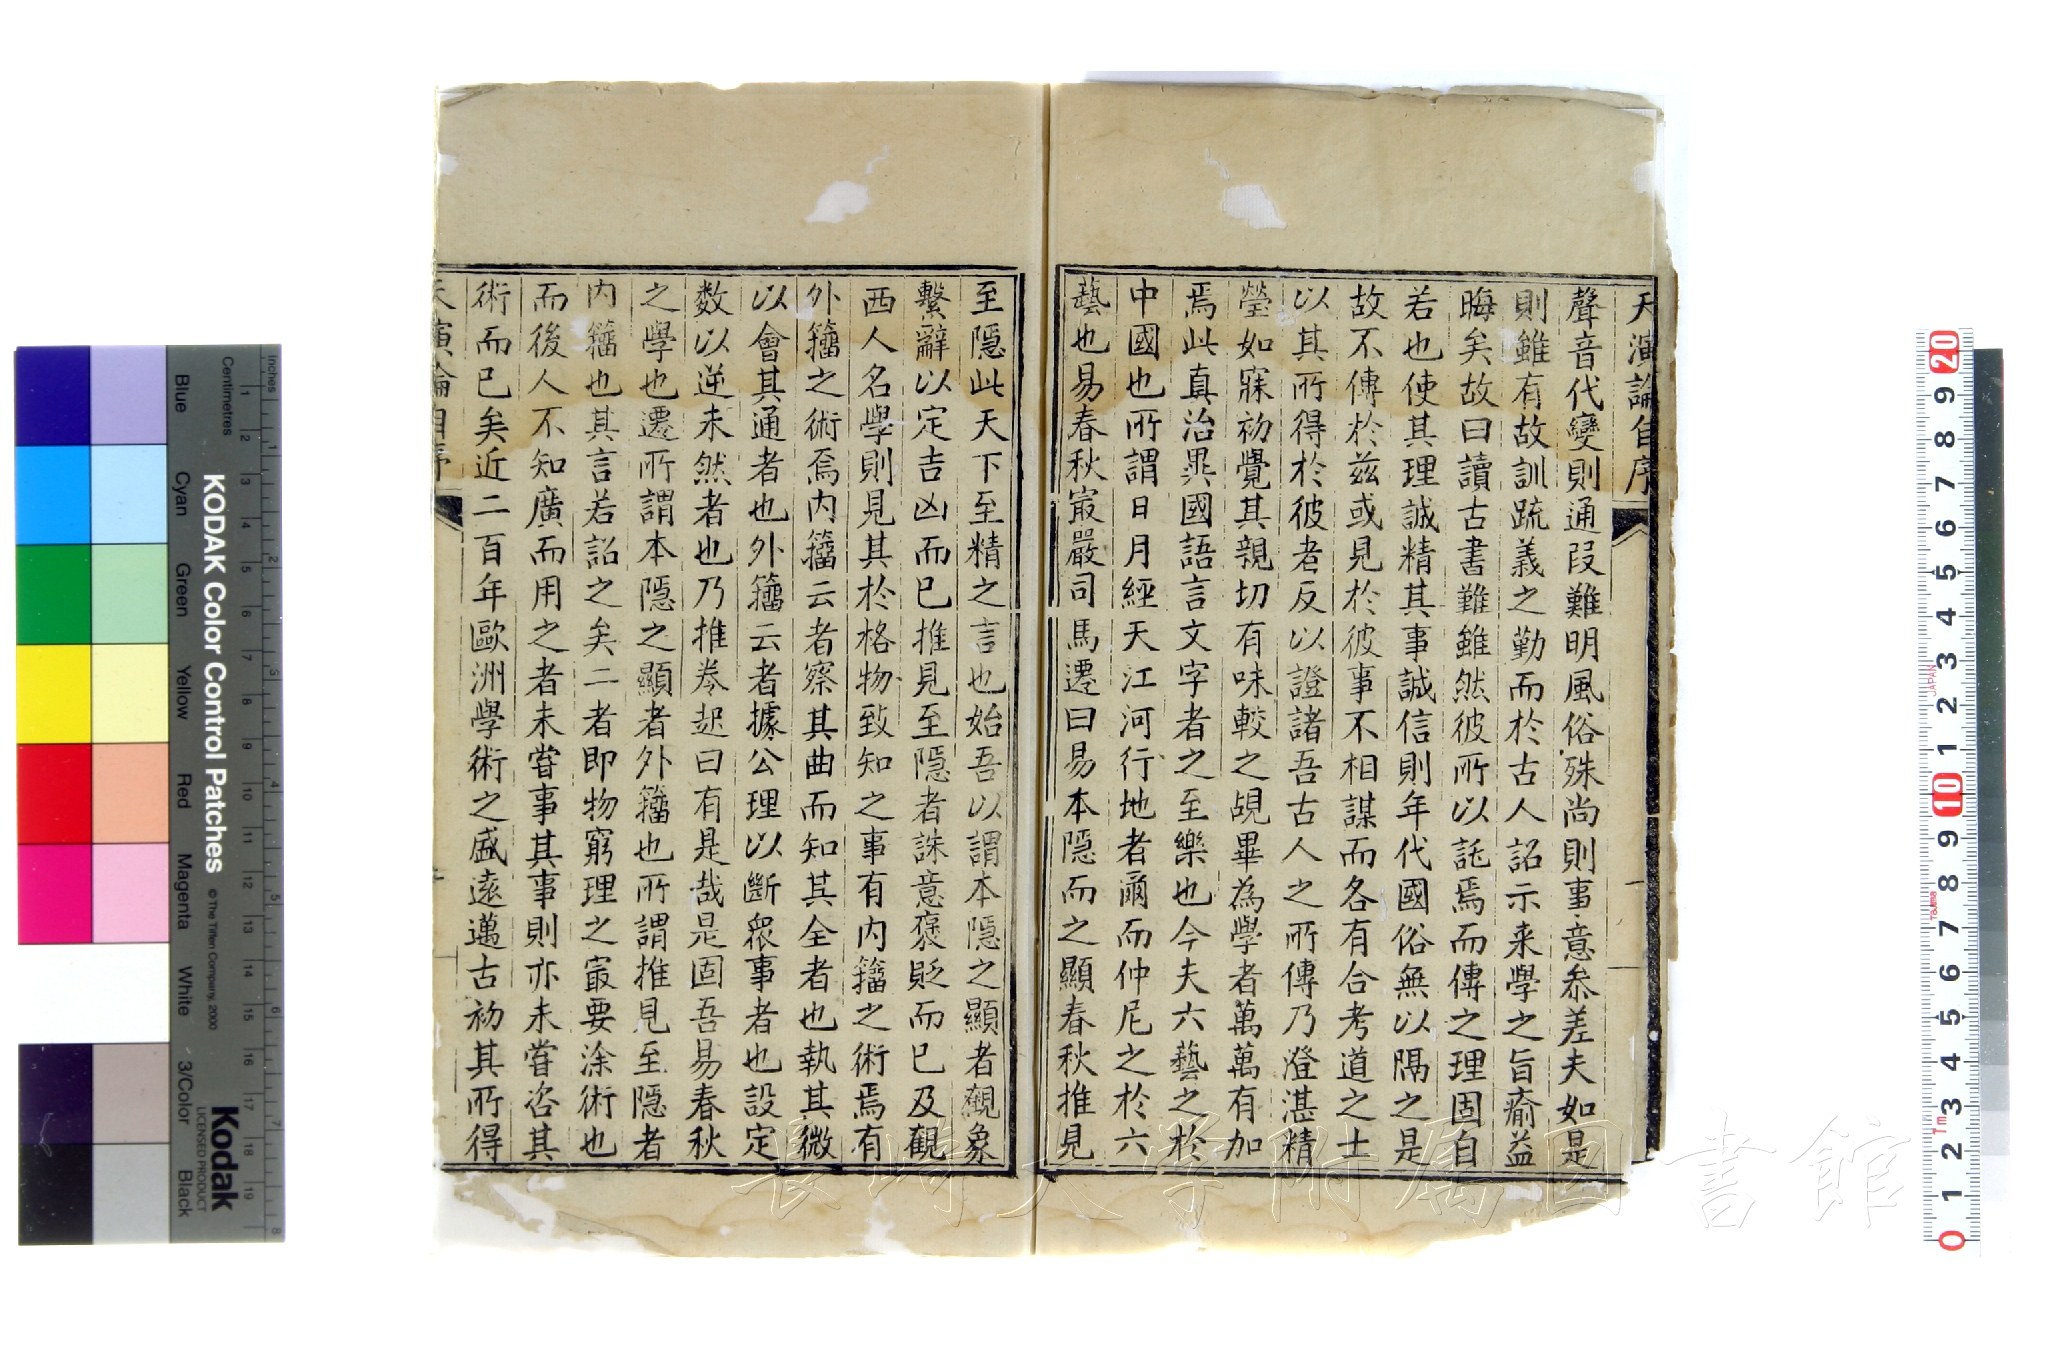 天演論自序
聲音代變則通叚難明風俗殊尚則事意參差夫如是
則雖有故訓疏義之勤而於古人詔示來學之旨瘉益
晦矣故曰讀古書難雖然彼所以託焉而傳之理固自
若也使其理誠精其事誠信則年代國俗無以隔之是
故不傳於茲或見於彼事不相謀而各有合考道之士
以其所得於彼者反以證諸吾古人之所傳乃澄湛精
瑩如寐初覺其親切有味較之覘畢為學者萬萬有加
焉此真治異國語言文字者之至樂也今夫六藝之於
中國也所謂日月經天江河行地者爾而仲尼之於六
藝也易春秋冣嚴司馬遷曰易本隱而之顯春秋推見
至隱此天下至精之言也始吾以謂本隱之顯者觀象
繫辭以定吉凶而已推見至隱者誅意褒貶而已及觀
西人名學則見其於格物致知之事有內籀之術焉有
外籀之術焉內籀云者察其曲而知其全者也執其微
以會其通者也外籀云者據公理以斷眾事者也設定
數以逆未然者也乃推卷起曰有是哉是固吾易春秋
之學也遷所謂本隱之顯者外籀也所謂推見至隱者
內籀也其言若詔之矣二者即物窮理之冣要涂術也
而後人不知廣而用之者未嘗事其事則亦未嘗咨其
術而已矣近二百年歐洲學術之盛遠邁古初其所得
天演論自序
KODAK Color Control Patches
©The Tiffen Company, 2000
Kodak
LICENSED PRODUCT
Inches
Centimetres
Blue
Cyan
Green
Yellow
Red
Magenta
White
3/Color
Black
1 2 3 4 5 6 7 8 9 10 11 12 13 14 15 16 17 18 19
20 9 8 7 6 5 4 3 2 1 10 9 8 7 6 5 4 3 2 1 0
JAPAN
長崎大学附属図書館